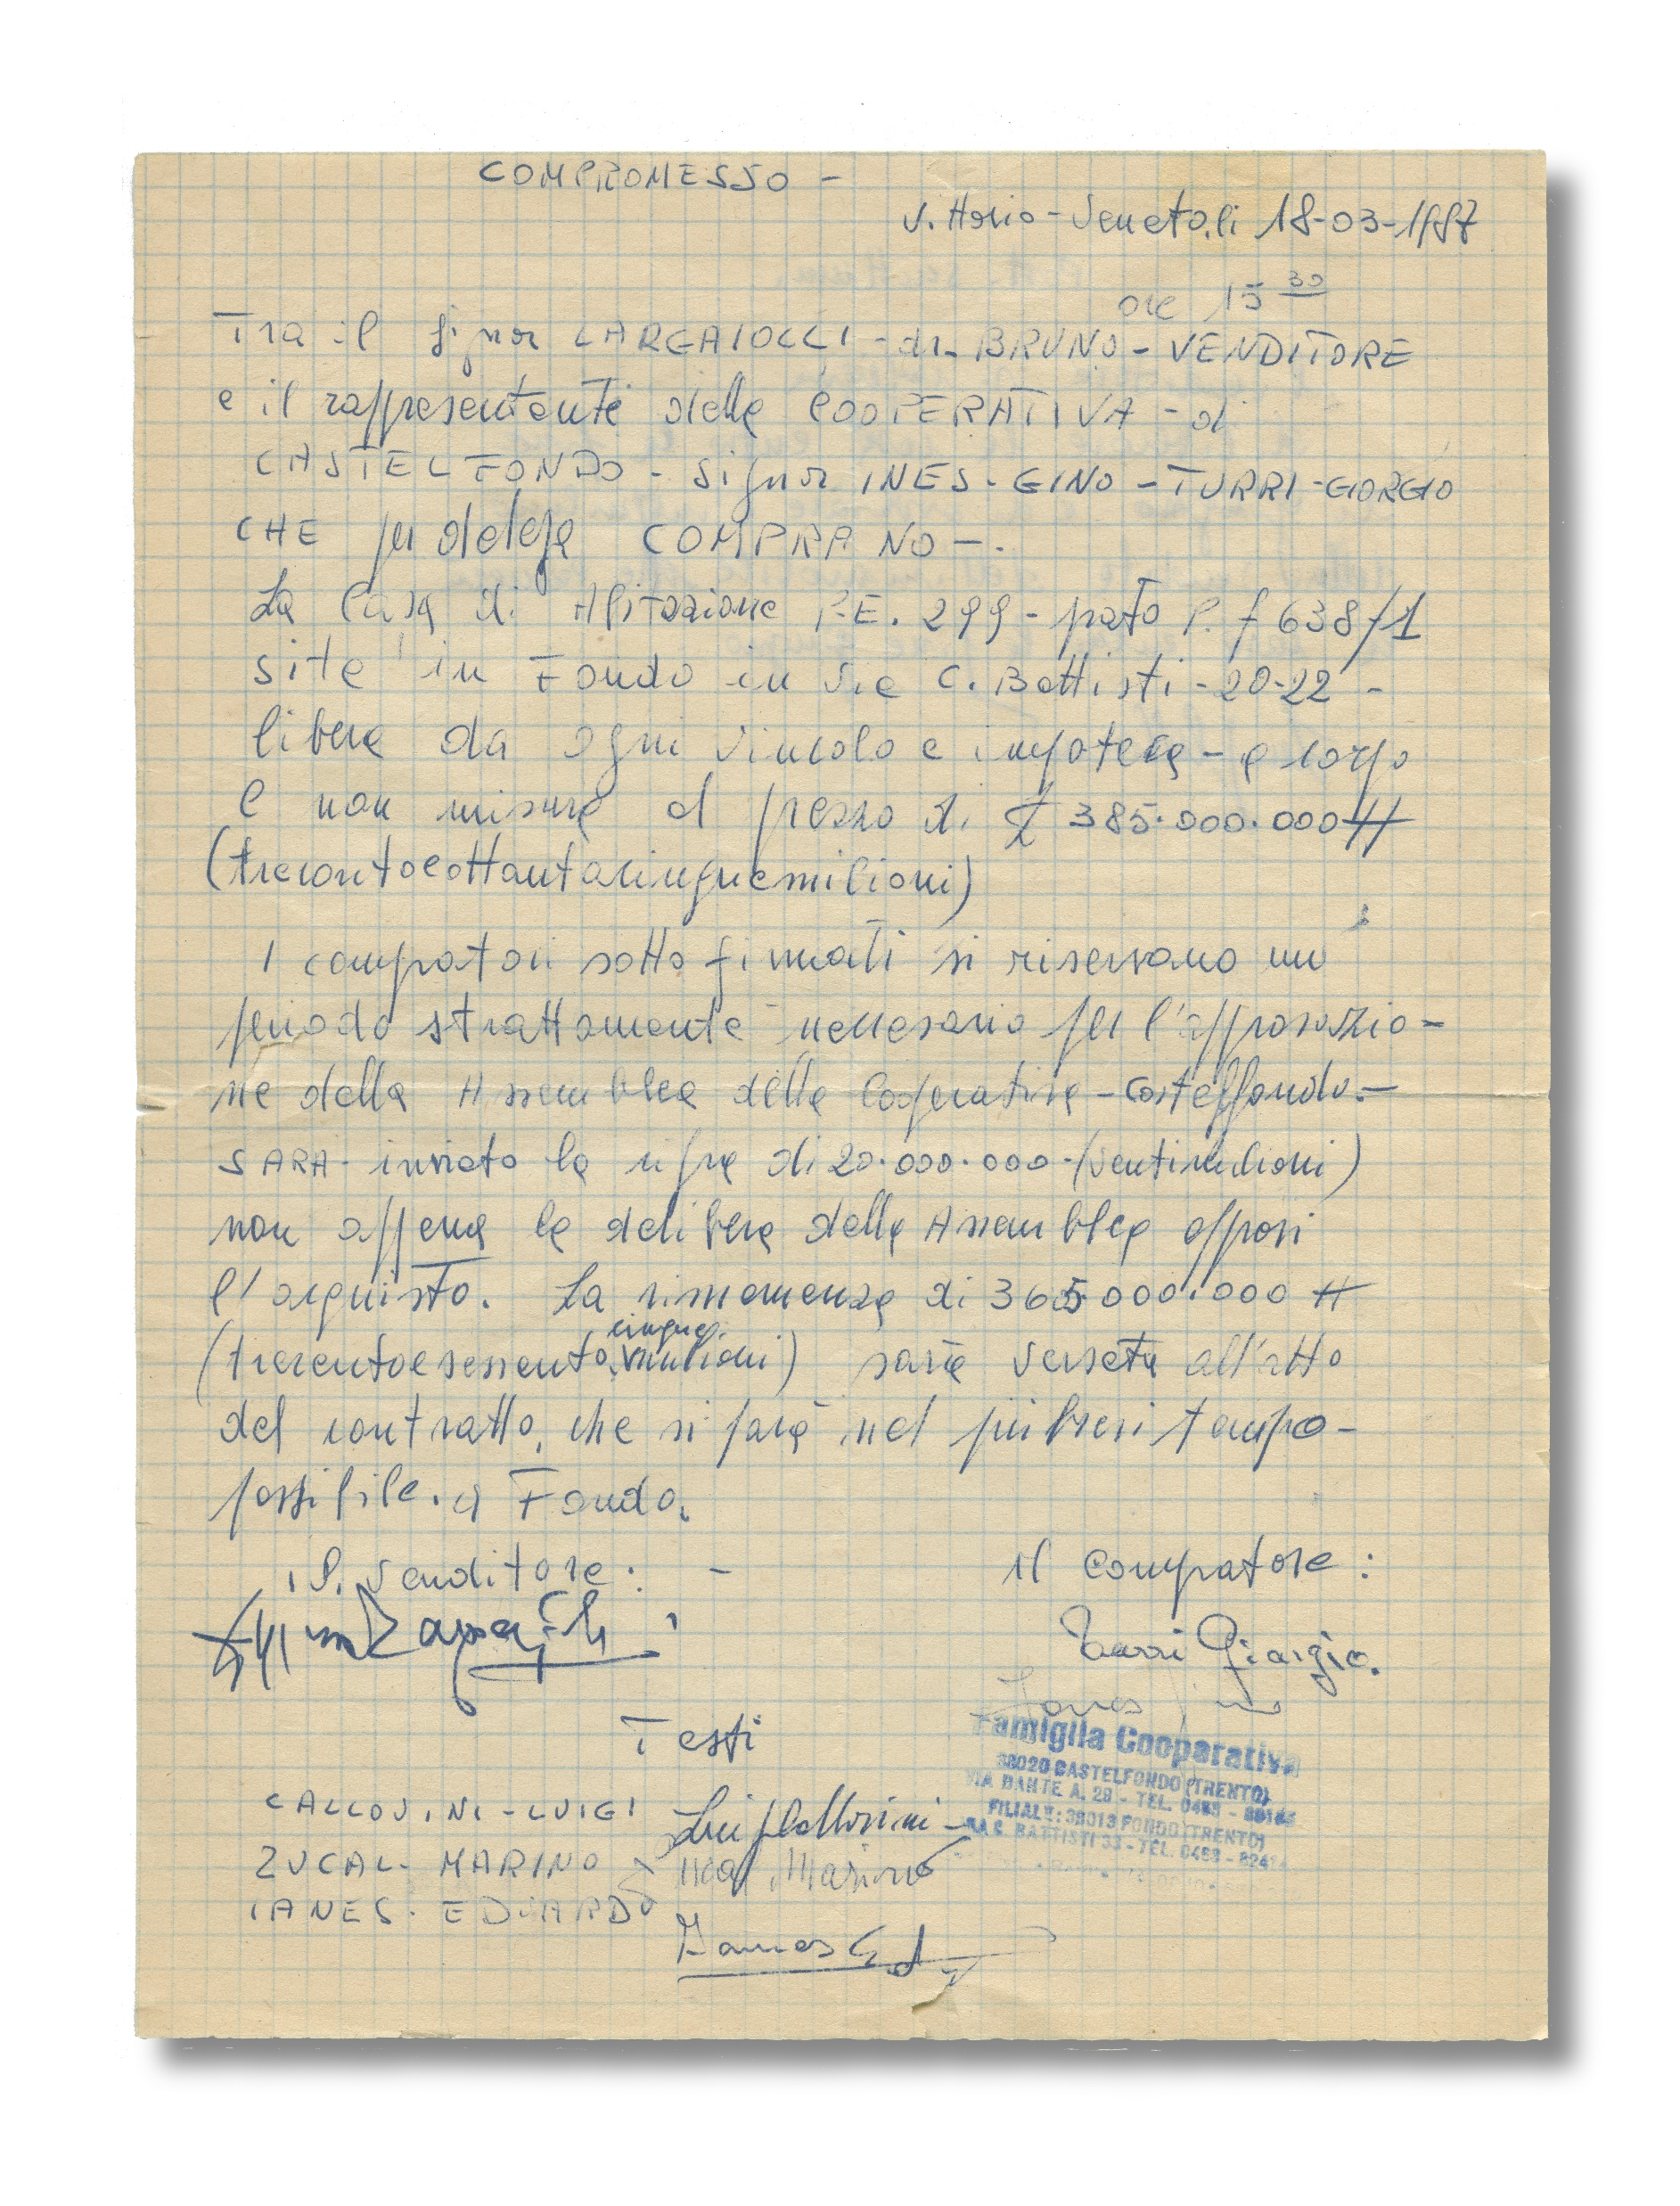 COMPROMESSO -
Vittorio-Veneto, li 18-03-1987
ore 15 30
Tra il Signor LARGAIOLLI - dr. BRUNO - VENDITORE
e il rappresentante della COOPERATIVA - di
CASTELFONDO - Signor INES - GINO - TURRI - GIORGIO
CHE per delega COMPRANO -.
La Casa di Abitazione P.E. 299 - prato P. f 638/1
site in Fondo in Via C. Battisti - 20-22 -
libera da ogni vincolo e impoteca - a corpo
e non misura al prezzo di £ 385.000.000 #
(trecentoeottantacinquemilioni)
I compratori sotto firmati si riservano un
periodo strattamente necessario per l'approvazio-
ne della Assemblea della Cooperativa - Castelfondo. -
SARA inviato la cifra di 20.000.000 - (ventimilioni)
non appena la delibera della Assemblea approvi
l'acquisto. La rimanenza di 365.000.000 #
cinque
(trecentoesessentamilioni) sarà versata all'atto
del contratto, che si farà nel più brevi tempo -
possibile. a Fondo.
Il Venditore: -
Il Compratore:
Turri Giorgio.
Ianes Gino
Testi
Famiglia Cooperativa
38020 CASTELFONDO (TRENTO)
VIA DANTE A. 29 - TEL. 0463 -
FILIALE: 38013 FONDO (TRENTO)
VIA C. BATTISTI 33 - TEL. 0463 -
CALLOVINI - LUIGI Luigi Callovini -
ZUCAL - MARINO Zucal Marino
IANES. EDOARDO Ianes Ed